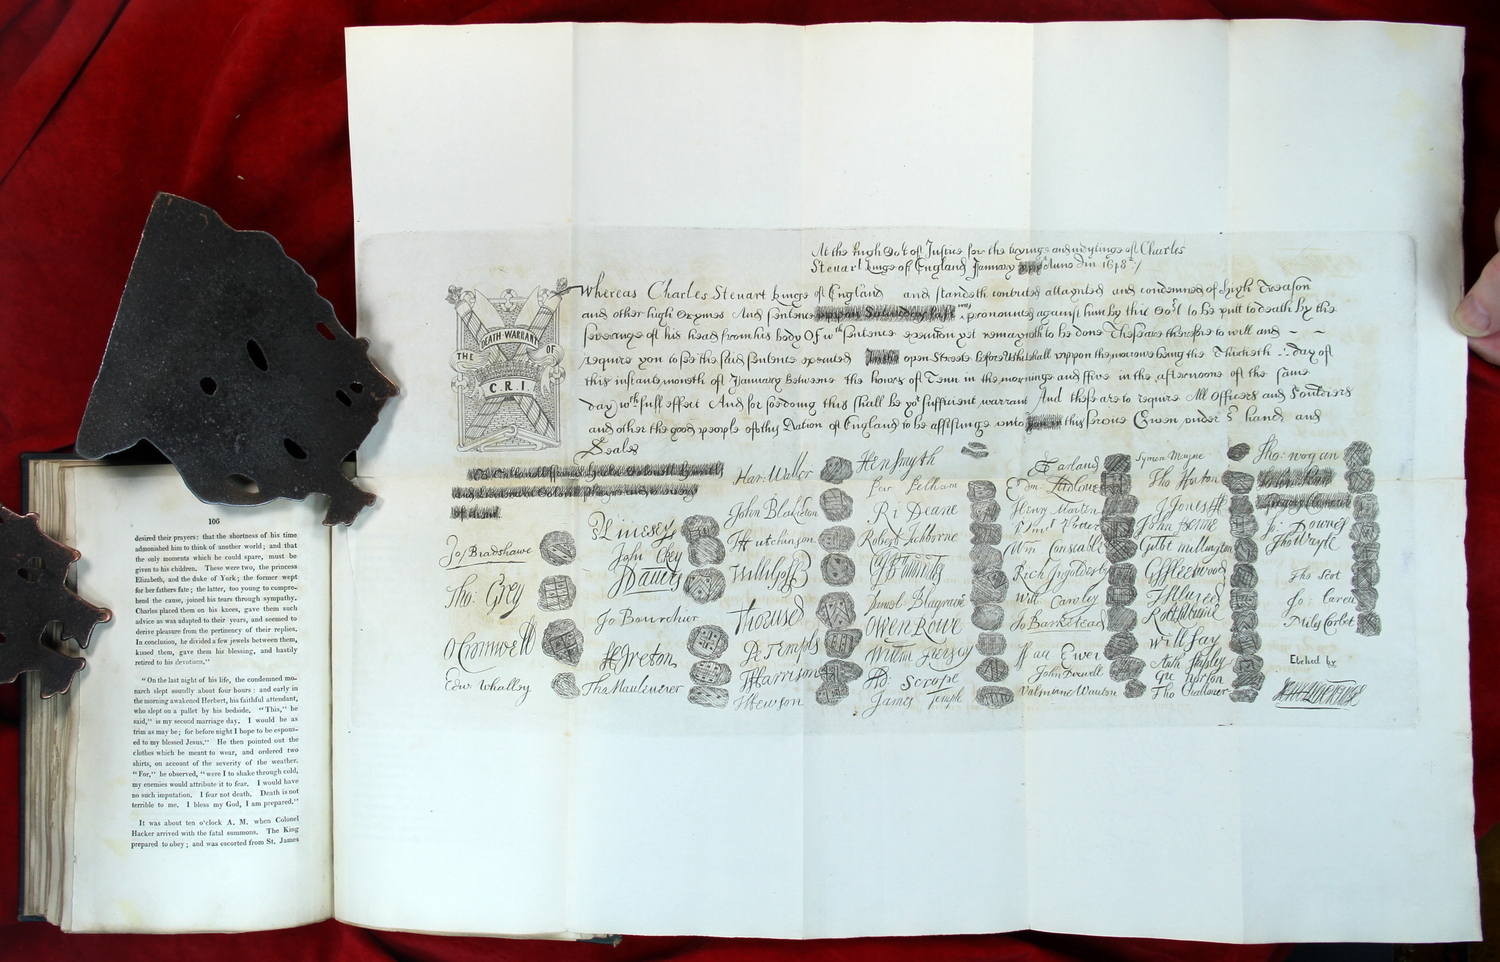 106
desired their prayers: that the shortness of his time
admonished him to think of another world; and that
the only moments which he could spare, must be
given to his children. These were two, the princess
Elizabeth, and the duke of York; the former wept
for her fathers fate; the latter, too young to compre-
hend the cause, joined his tears through sympathy.
Charles placed them on his knees, gave them such
advice as was adapted to their years, and seemed to
derive pleasure from the pertinency of their replies.
In conclusion, he divided a few jewels between them,
kissed them, gave them his blessing, and hastily
retired to his devotions,"
"On the last night of his life, the condemned mo-
narch slept soundly about four hours; and early in
the morning awakened Herbert, his faithful attendant,
who slept on a pallet by his bedside. "This," he
said," is my second marriage day. I would be as
trim as may be; for before night I hope to be espous-
ed to my blessed Jesus," He then pointed out the
clothes which he meant to wear, and ordered two
shirts, on account of the severity of the weather.
"For," he observed, "were I to shake through cold,
my enemies would attribute it to fear. I would have
no such imputation. I fear not death. Death is not
terrible to me. I bless my God, I am prepared."
It was about ten o'clock A. M. when Colonel
Hacker arrived with the fatal summons. The King
prepared to obey; and was escorted from St. James
At the high Cot of Justice for the tryinge and iudginge of Charles
Steuart kinge of England January Anno Dm 1648
THE DEATH WARRANT OF
C.R.I.
Whereas Charles Steuart kinge of England and standeth convicted attaynted and condemned of high Treason
and other high Crymes And sentence pronounced against him by this Cort to be putt to death by the
severinge of his head from his body Of wth sentence execucon yet remayneth to be done These are therefore to will and
require you to see the said sentence executed open Streete before Whitehall uppon the morrowe being the Thirtieth day of
this instante moneth of January betweene the hours of Tenn in the morninge and ffive in the afternoone of the same
day wth full effect And for soe doing this shall be yor sufficient warrant And these are to require All Officers and Souldiers
and other the good people of this Nation of England to be assistinge unto this service Given under or hands and
Seales
Jo Bradshawe
Tho: Grey
O Cromwell
Edw Whalley
John Okey
J Danvers
Jo Bourchier
H Ireton
Tho Mauleverer
Har: Waller
John Blakiston
J Hutchinson
Willi Goff
T Horton
P Temple
T Harrison
J Hewson
Hen Smyth
Per Pelham
Ri Deane
Robert Tichborne
Daniel Blagrave
Owen Rowe
Willm Purefoy
Ad: Scrope
James Temple
A Garland
Edm: Ludlowe
Henry Marten
Vinct Potter
Wm Constable
Rich Ingoldesby
Will Cawley
Jo Barkstead
Isaa Ewer
John Dixwell
Valentine Wauton
Symon Mayne
Tho Horton
J Jones
John Penne
Gilbt Millington
G Fleetwood
J Alured
Robt Lilburne
Will Say
Anth Stapley
Gre Norton
Tho Challoner
Tho: Wogan
Jo: Downes
Tho Wayte
Tho Scot
Jo: Carew
Miles Corbet
Etched by